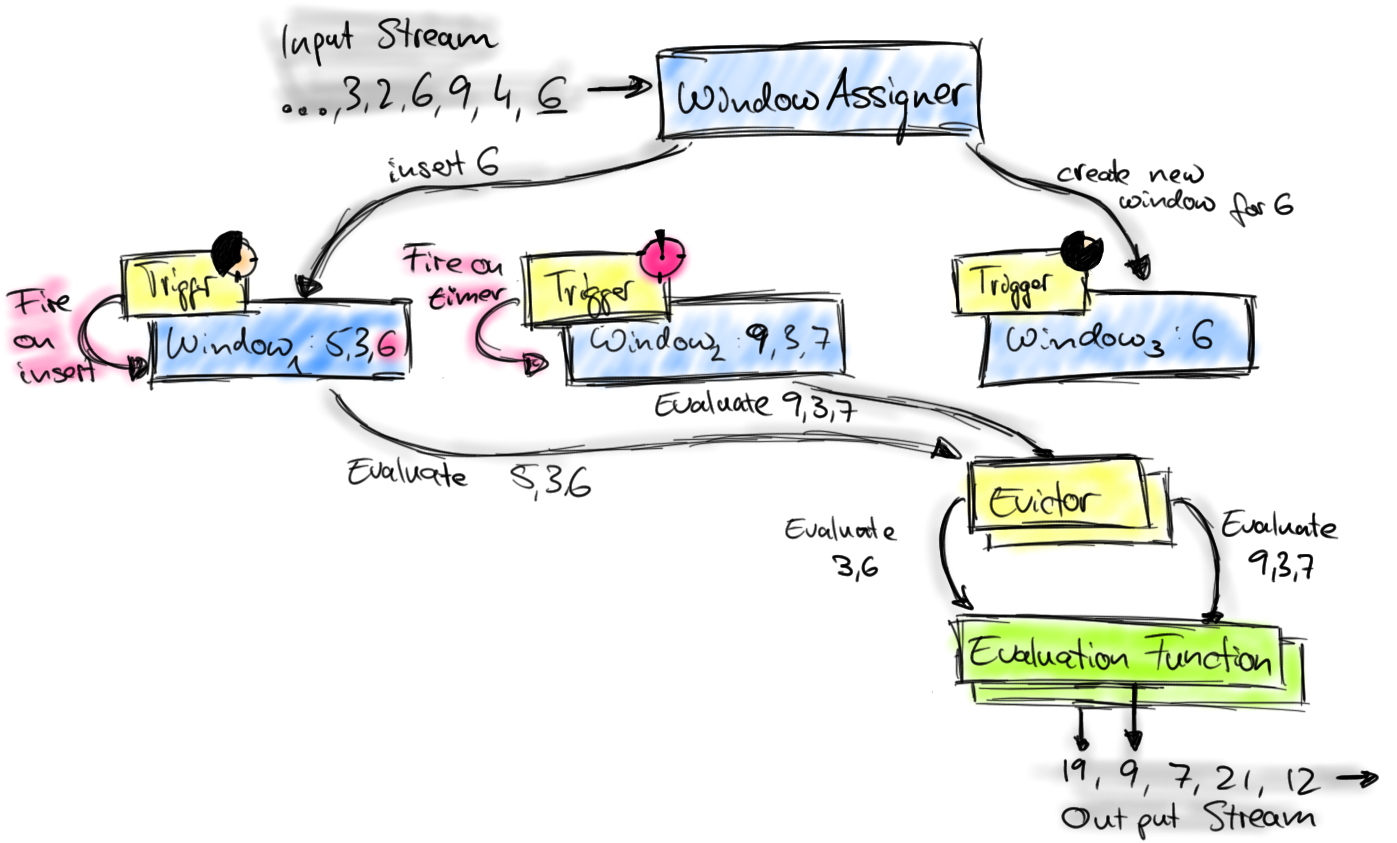 Input Stream
...,3,2,6,9,4,6
Window Assigner
insert 6
create new
window for 6
Trigger
Fire
on
insert
Window1 : 5,3,6
Fire on
timer
Trigger
Window2 : 9,3,7
Trigger
Window3 : 6
Evaluate 9,3,7
Evaluate 5,3,6
Evictor
Evaluate
3,6
Evaluate
9,3,7
Evaluation Function
19, 9, 7, 21, 12
Output Stream